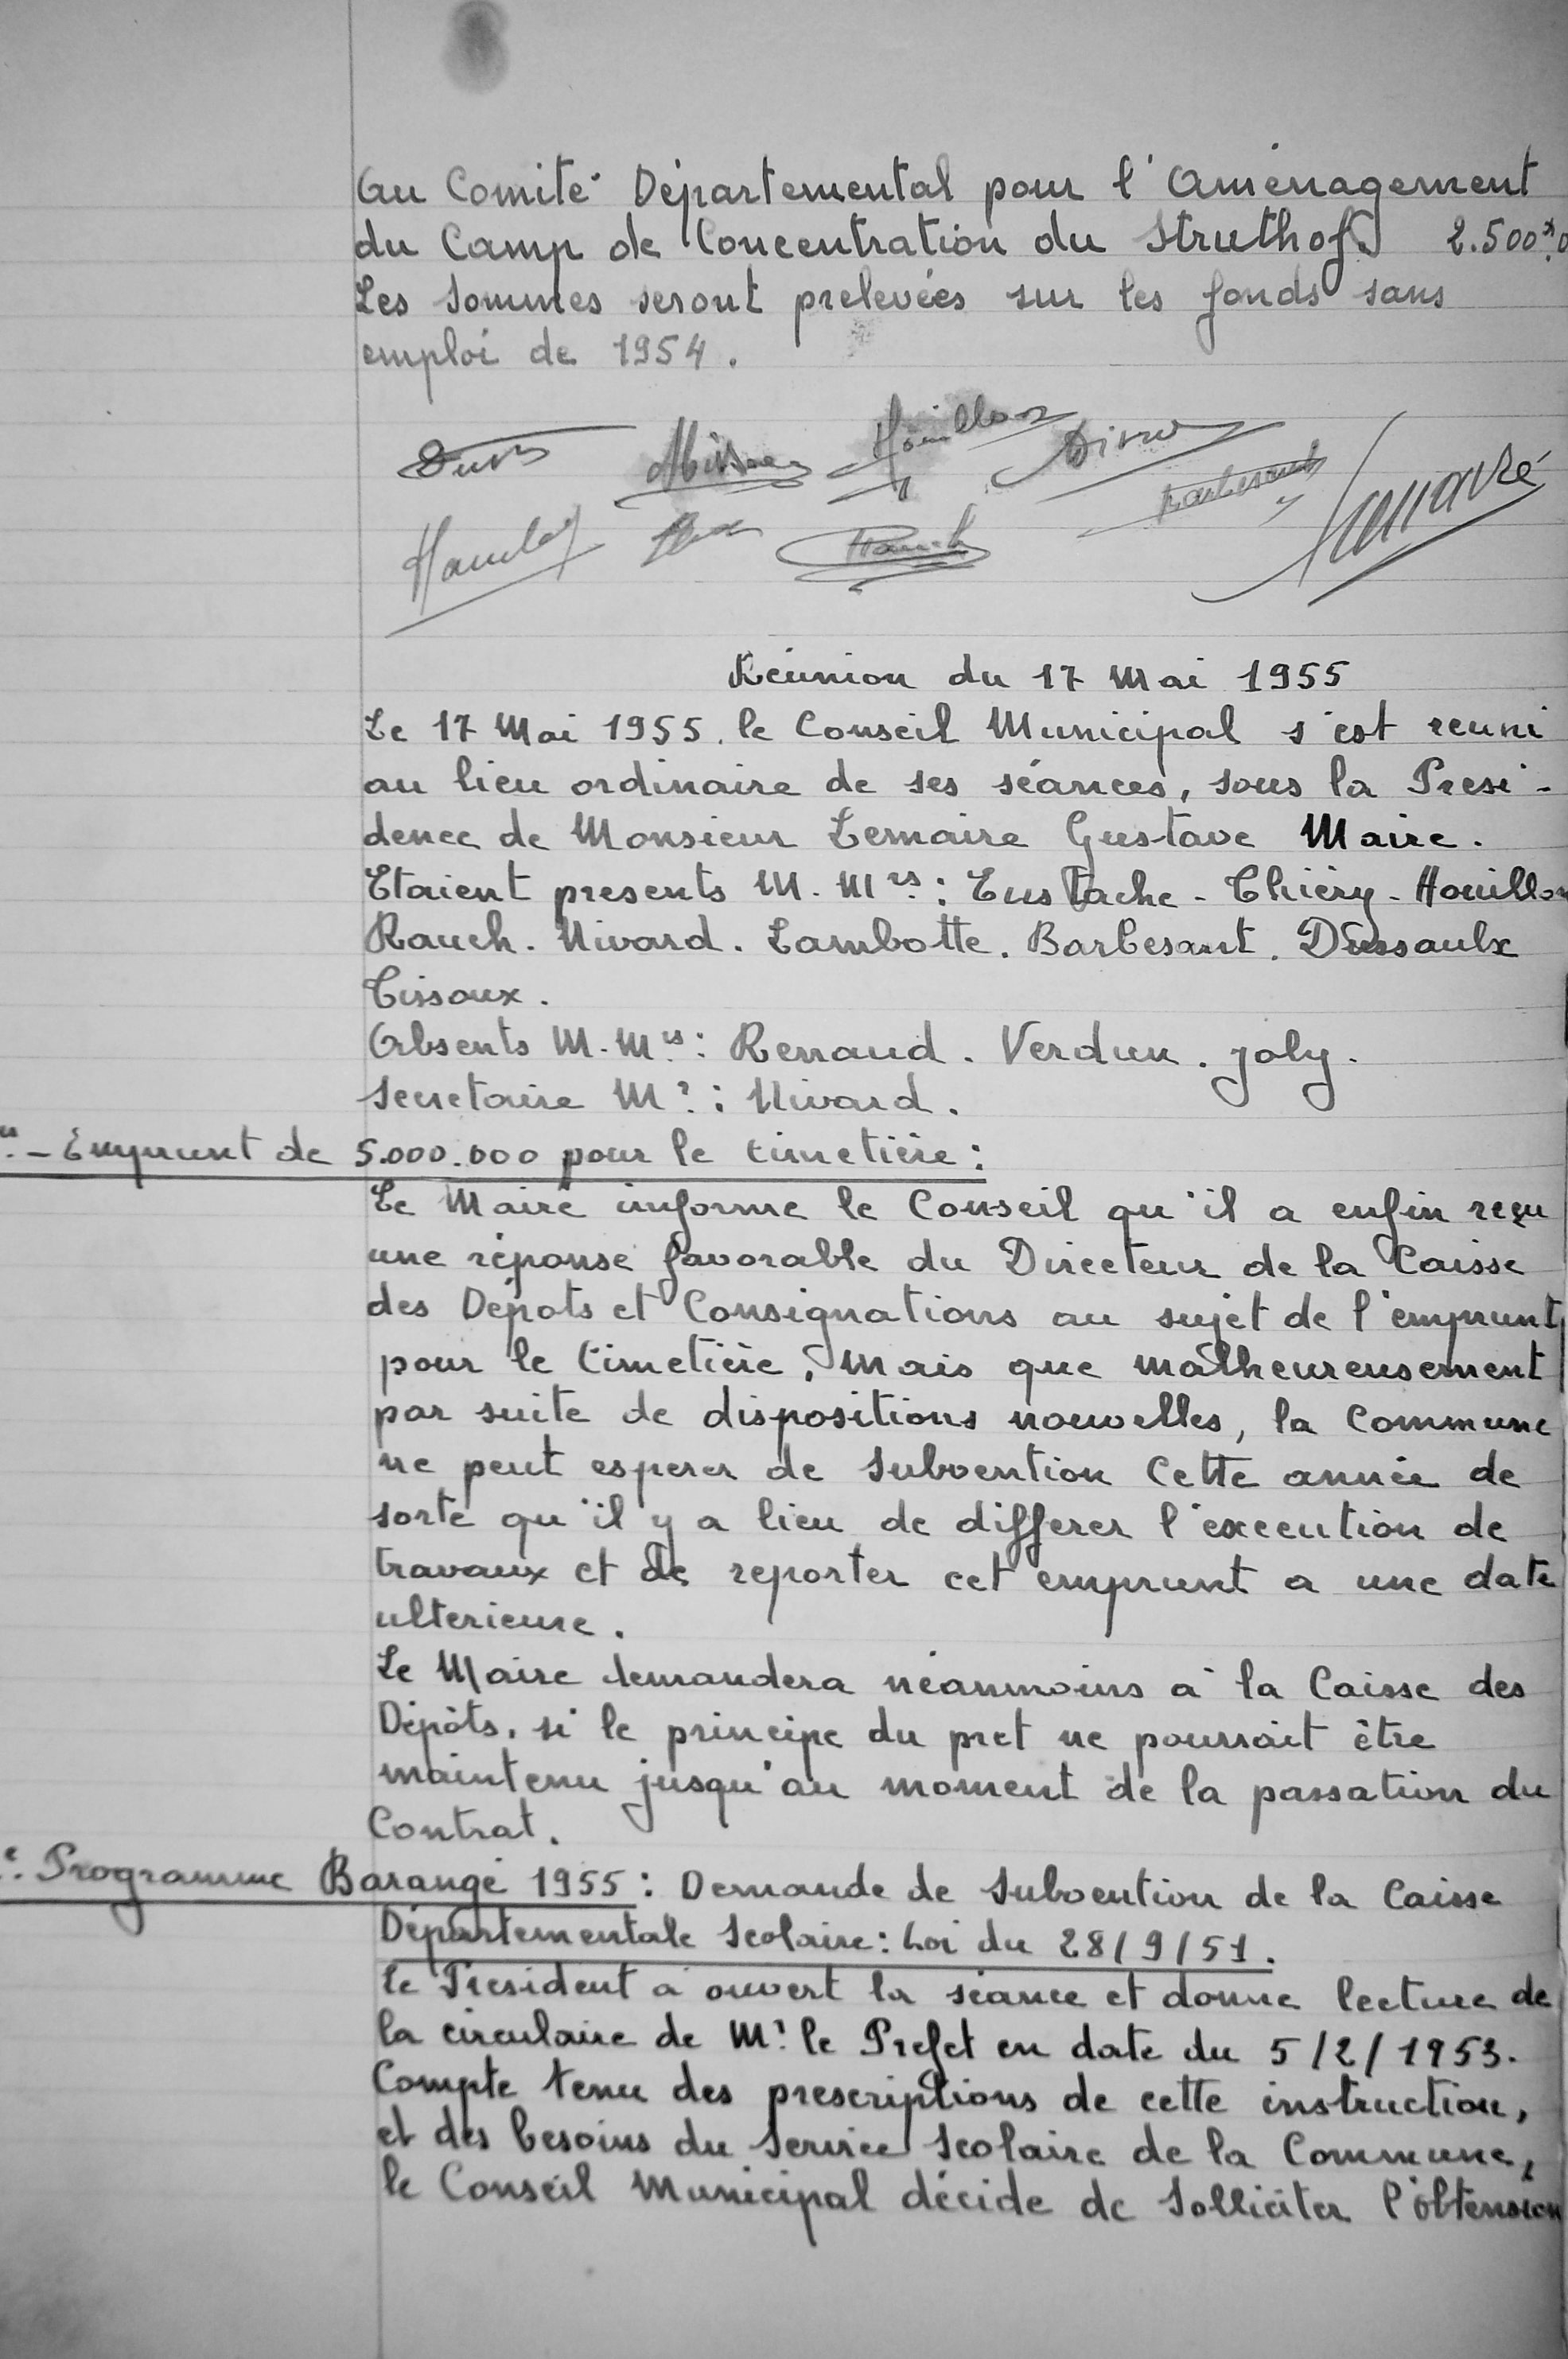 Au Comité Départemental pour l'Aménagement
du Camp de Concentration du Struthof. 2.500
Les sommes seront prelevées sur les fonds sans
emploi de 1954.
Houillon
Barbesant
Rauch
Réunion du 17 Mai 1955
Le 17 Mai 1955. le Conseil Municipal s'est reuni
au lieu ordinaire de ses séances, sous la Presi-
dence de Monsieur Lemaire Gustave Maire.
Etaient presents M. Mrs: Eustache - Thiéry - Houillon
Rauch. Nivard. Lambotte. Barbesant. Dussaulx
Tissoux.
Absents M. Mrs: Renaud. Verdun. Joly.
Secretaire Mr: Nivard.
- Emprunt de 5.000.000 pour le cimetière:
Le Maire informe le Conseil qu'il a enfin reçu
une réponse favorable du Directeur de la Caisse
des Dépots et Consignations au sujet de l'emprunt
pour le Cimetière, Mais que malheureusement
par suite de dispositions nouvelles, la Commune
ne peut esperer de Subvention Cette année de
sorte qu'il y a lieu de differer l'execution de
travaux et de reporter cet emprunt a une date
ulterieure.
Le Maire demandera néanmoins à la Caisse des
Dépôts, si le principe du pret ne pourrait être
maintenu jusqu'au moment de la passation du
Contrat.
Programme Barangé 1955: Demande de Subvention de la Caisse
Départementale Scolaire: Loi du 28/9/51.
Le Président a ouvert la séance et donne lecture de
la circulaire de Mr le Prefet en date du 5/2/1953.
Compte tenu des prescriptions de cette instruction,
et des besoins du Service Scolaire de la Commune,
le Conseil Municipal décide de Solliciter l'obtension